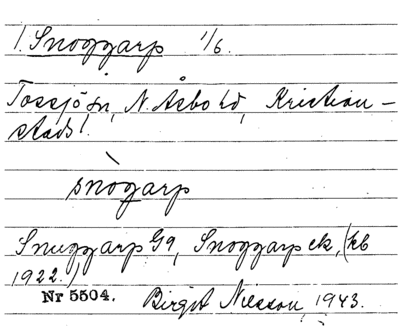 1. Snoggarp 1/6.
Tossjö sn, N. Åsbo hd, Kristian-
stads l.
snògarp
Snuggarp G9, Snoggarp ek, (kb
1922.)
Nr 5504. Birgit Nilsson, 1943.